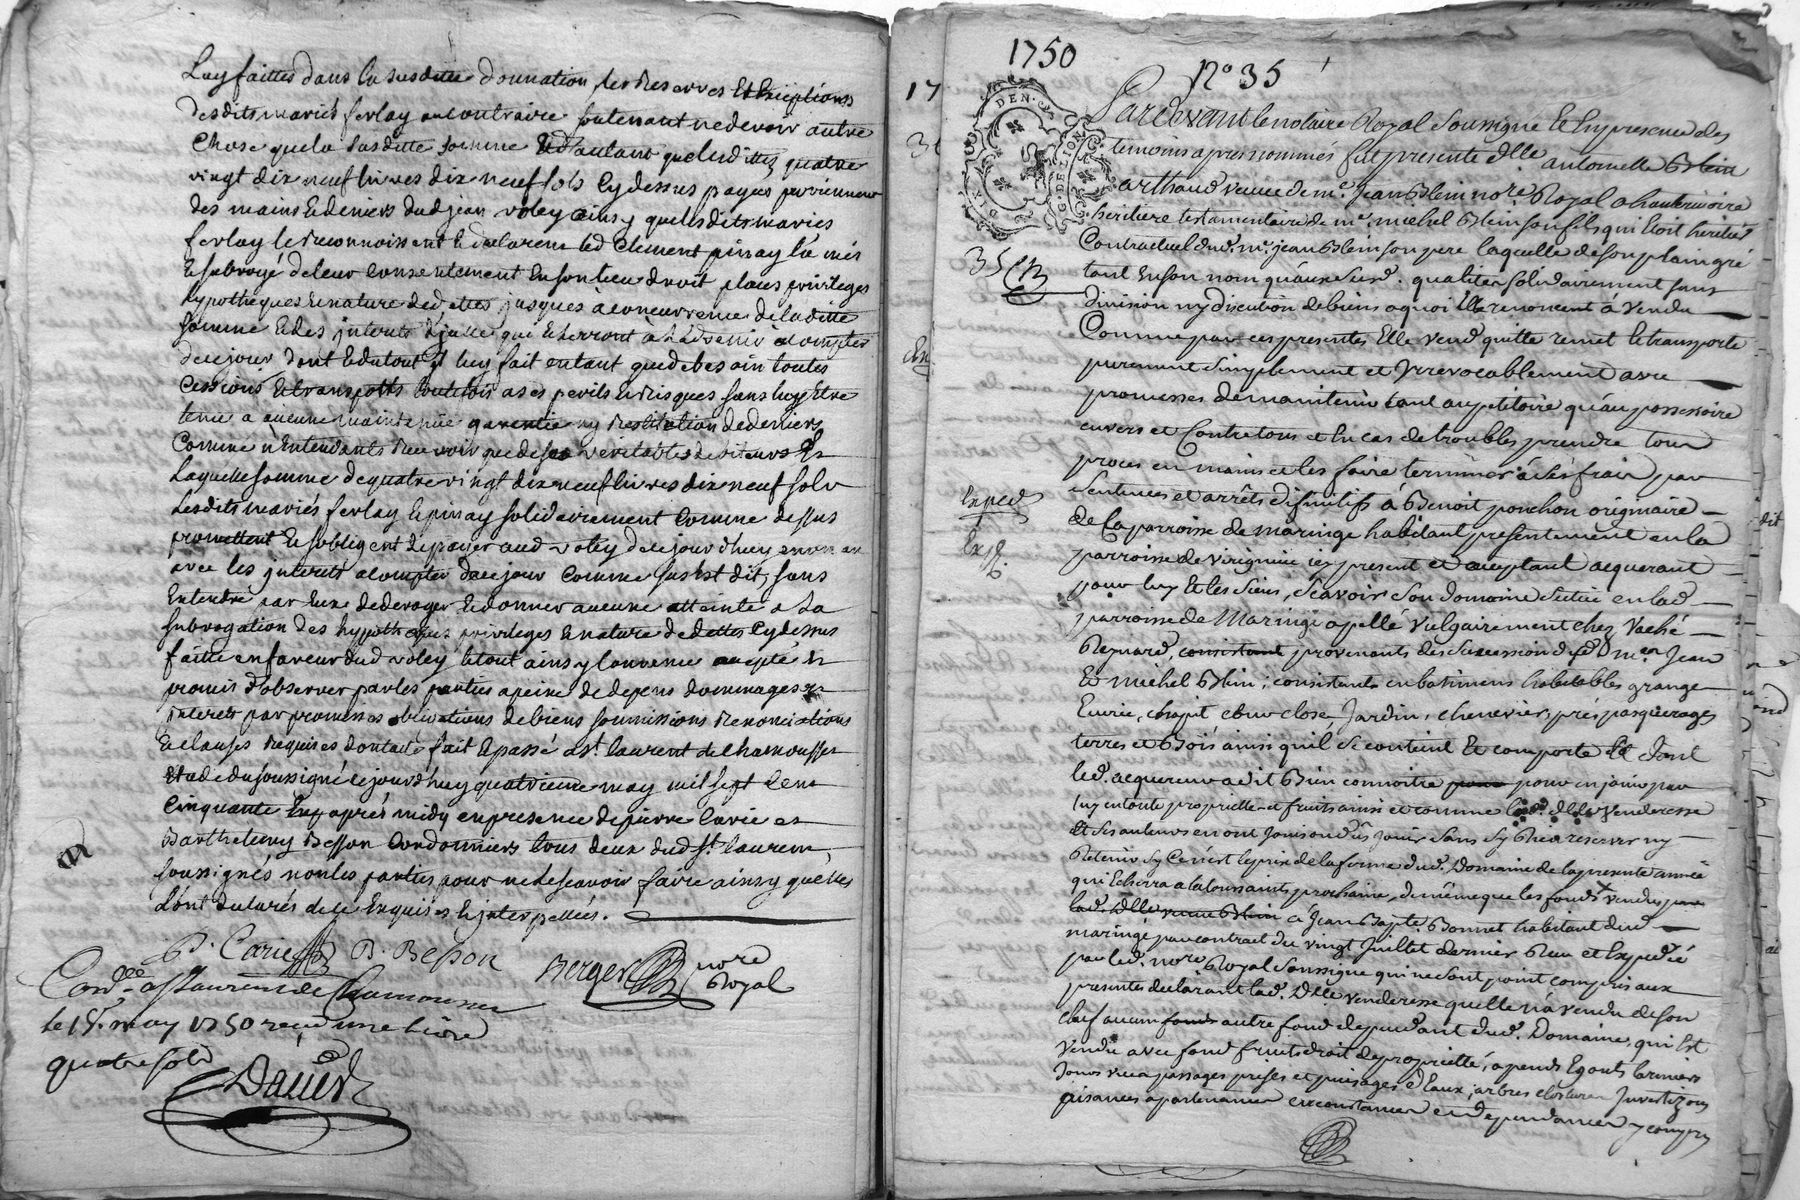 Luy faittes dans la susditte donnation les reserves et exceptions
desdits mariés ferlay au contraire soutenant ne devoir autre
chose que la susditte somme d'autant que lesdittes quatre
vingt dix neuf livres dix neuf sols cy dessus payés proviennent
des mains et deniers dud jean voley ainsy que lesdits mariés
ferlay le reconnoissent et declarent led Clement pinay l'a mis
et subrogé de leur consentement en son lieu droit place privileges
hypotheques et nature de dettes jusques a concurrence de la ditte
somme et des interets d'jcelle qui echerront à l'advenir a compter
de ce jour dont du tout il luy fait en tant que de besoin toutes
cessions et transports toutefois a ses perils et risques sans luy etre
tenu a aucune maintenüe garentie ny restitution de deniers
comme n'entendants recevoir que de ses veritables debiteurs et
laquelle somme de quatre vingt dix neuf livres dix neuf sols
lesdits mariés ferlay et pinay solidairement comme dessus
promettent et s'obligent de payer aud voley de ce jourd'huy en un an
avec les jnterets a compter de ce jour comme sus est dit, sans
entendre par eux de deroger et donner aucune atteinte a la
subrogation des hypotheques privileges et nature de dettes cy dessus
faitte en faveur dud voley le tout ainsy convenu accepté et
promis d'observer par les parties a peine de depens dommages et
interets par promesses obligations de biens soumissions renonciations
et clauses requises dont acte fait et passé a St. laurent de chamousset
etude du soussigné ce jourd'huy quatrieme may mil sept cent
cinquante apres midy en presence de pierre Carie et
Barthelemy Besson Cordonniers tous deux dud St. laurent,
soussignés non les parties pour ne le scavoir faire ainsy quelles
l'ont declarés de ce enquises et jnterpellées.
P. Carie B. Besson
Berger nore
Royal
Con.lle a St Laurent de Chamousset
le 15. may 1750 reçu une livre
quatre sols
David
1750
No 35
17
DEN.
G. DE LION
DIX
Pardevant le notaire Royal soussigné et en presence des
temoins apres nommés fut presente dlle antoinette Blein
arthaud veuve de me. jean Blein nore. Royal a hauterivoire
heritiere testamentaire de me. michel Blein son fils qui etoit heritier
Contractuel dud. me. jean Blein son pere laquelle de son plain gré
35
tant en son nom qu'aux susd. qualités solidairement sans
division ny discution de biens a quoi elle renoncent à vendu
Comme par ces presentes Elle vend quitte remet et transporte
purement simplement et Irrevocablement avec
promesses de maintenir tant au petitoire qu'au possessoire
envers et Contre tous et en cas de troubles prendre tour
proces en mains et les faire terminer à ses frais par
Exped
sentences et arrêts difinitifs à Benoit ponchon originaire
de la parroisse de maringe habitant presentement en la
Exp.
parroisse de virignieu icy present et acceptant acquerant
pour luy et les siens, sçavoir son domaine scitué en lad
parroisse de Maringe apellé vulgairement chez vaché
Regnard, consistant provenants des succession desd. mes Jean
Et michel Blein; consistants en batimens habitables grange
Ecurie, chapit cour close, Jardin, chenevier, prés pasquerages
terres et Bois ainsi qu'il se contient Et comporte Et dont
led. acquereur a dit Bien connoitre pour en jouir par
luy en toute proprieté et fruits ainsi et comme lad. dlle venderesse
Et ses auteurs en ont Joui ou dûs Jouir sans sy Rien reserver ny
Retenir sy Ce n'est le prix de la ferme dud. Domaine de la presente année
qui Echerra a la toussaints prochaine, de même que les fonds vendus par
lad. dlle veuve Blein à Jean Bapte. Bonnet habitant dud
maringe par contract du vingt Juillet dernier Reçu et Expedié
par led. nore. Royal soussigne qui ne sont point compris aux
presentes declarant lad. Dlle venderesse quelle n'a vendu de son
chef aucun fonds autre fond dependant dud. Domaine, qui Est
vendu avec fond fruits droit de proprietté, apends Egouts larmiers
Jours vues passages prises et puisages d'Eaux, arbres cloture Investizons
aisances apartenances circonstances et dependances y compris